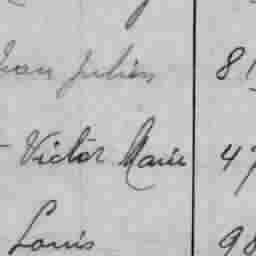 Jean Julien 81
Victor Marie 47
Louis 98